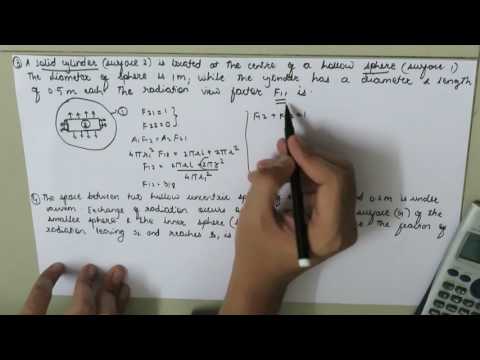 ③ A solid cylinder (surface 2) is located at the centre of a hollow sphere (surface 1)
The diameter of sphere is 1m, while the cylinder has a diameter & length
of 0.5m each. The radiation view factor F11 is
①
②
F21 = 1
F22 = 0
A1F12 = A2F21
4πr1² F12 = 2πrl + 2πr²
F12 = 2πrl + 2πr²
4πr1²
F12 = 3/8
F12 + = 1
④ The space between two hollow concentric 0.2m is under
vacuum. Exchange of radiation occurs surface (s1) of the
smaller sphere & the inner sphere the fraction of
radiation leaving s2 and reaches s1, is